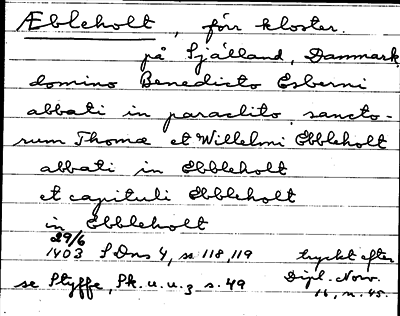 Æbleholt, förr kloster.
på Själland, Danmark
domino Benedicto Esberni
abbati in paraclito, sancto-
rum Thomæ et Willelmi Ebbleholt
abbati in Ebbleholt
et capituli Ebbleholt
in Ebbleholt
29/6
1403 SDns 4, ss 118, 119 tryckt efter
se Styffe, Sk. u. u. 3 s. 49 Dipl. Norv.
16, n. 45.